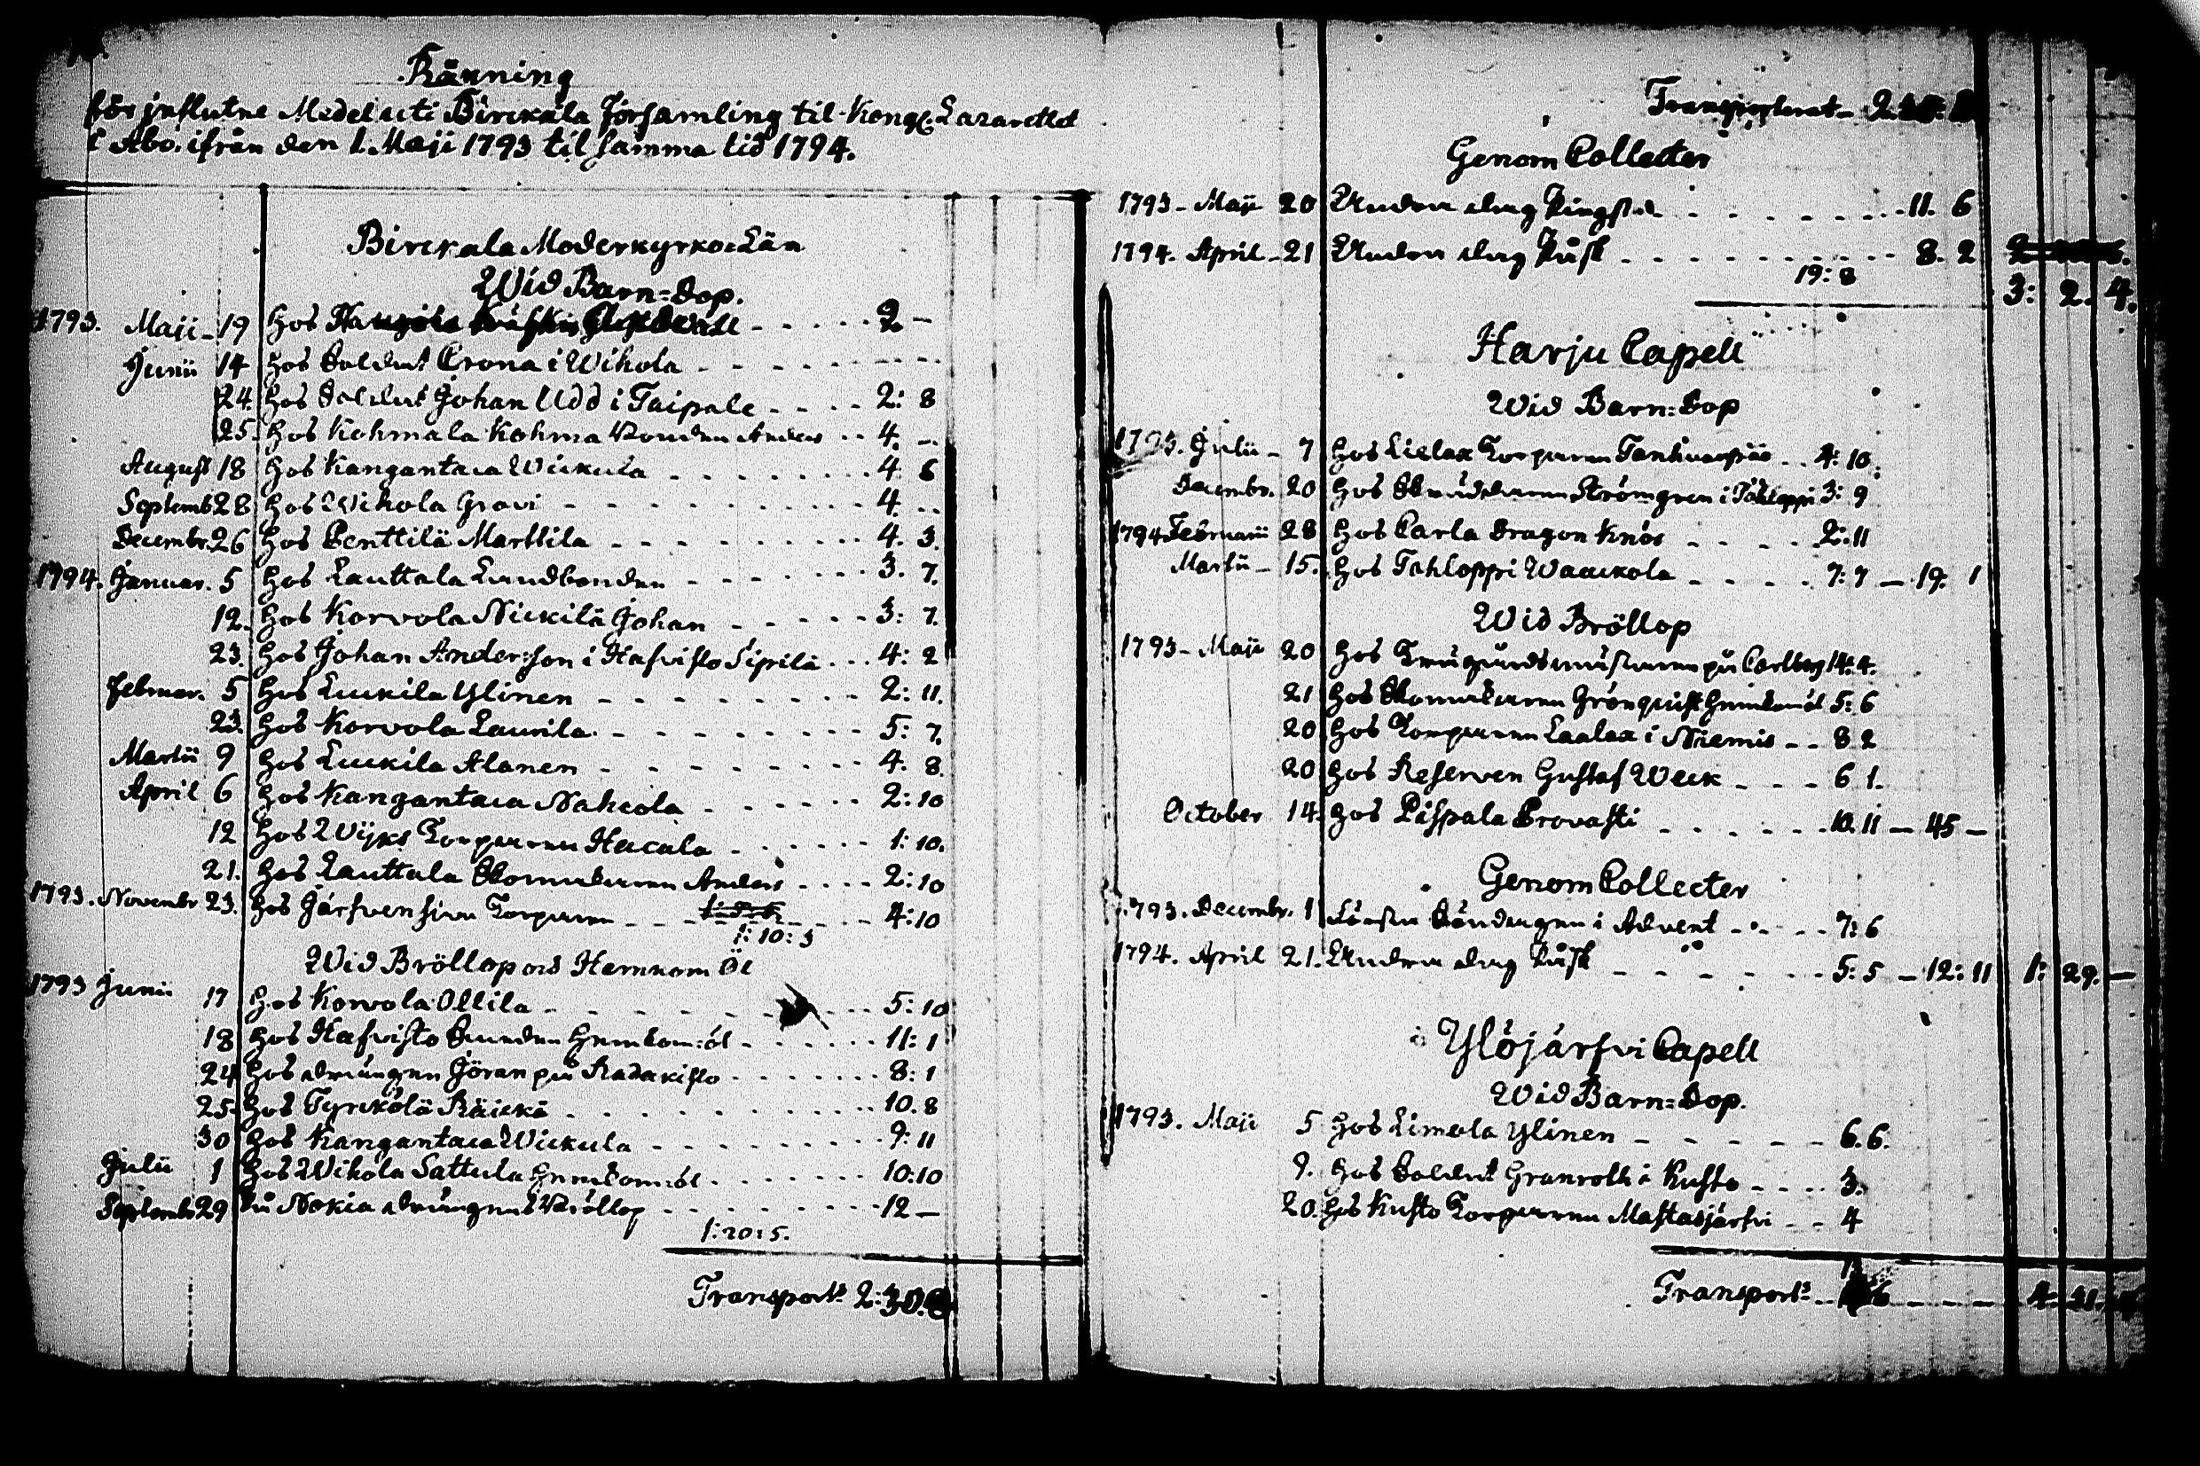 Räkning
för influtne Medel uti Birckala Församling til Kongl. Lazarettet
i Åbo, ifrån den 1. Maji 1793 til samma tid 1794.
Birckala Moderkyrko Län
Wid Barn=Dop.
1793. Maji 19 hos - - - - 2 -
Junii 14 hos Soldat Crona i Wihola - - - -
24. hos Soldat Johan Udd i Taipale - - - - 2: 8
25. hos Kohmala Kohma Bonden Anders - - 4. -
August 18 hos Kangantaca Wickula - - - - 4 6
Septemb 28 hos Wihola Grovi - - - - 4 -
Decembr. 26 hos Penttilä Marttila - - - - 4. 3.
1794. Januar. 5 hos Lauttala Landbonden - - - - 3. 7.
12. hos Korvola Nickilä Johan - - - - 3: 7.
23. hos Johan Andersson i Hafvisto Sipilä - - - 4: 2
Februar. 5 hos Luckila Ylinen - - - - 2: 11.
23. hos Korvola Laurila - - - - 5: 7.
Martii 9 hos Luckila Alanen - - - - 4. 8.
April 6 hos Kangantaca Nahcola - - - - 2: 10
12 hos Wijks Torparen Hacala - - - - 1: 10.
21. hos Lauttala Anders - - - - 2: 10
1793. Novembr 23. hos Järfvensivu Torparen - - - - 4: 10
1: 10: 3
Wid Bröllop och Hemkom Öl
1793 Junii 17 hos Korvola Ollila - - - - 5: 10
18 hos Hafvisto Hemkom:öl - - - - 11: 1
24 hos Drängen Göran på Radakisto - - - - 8: 1
25. hos Tyrckölä Räickä - - - - 10. 8
30 hos Kangantaca Wickula - - - - 9: 11
Julii 1 hos Wihola Sattula Hemkom:öl - - - - 10: 10
Septembr 29 På Nokia Drängens Bröllop - - - - 12 -
1: 20: 5.
Transport 2: 30.
Transporterat
Genom Collecter
1793 - Maji 20 Andra dag Pingst - - - - 11. 6
1794. April - 21 Andra dag Påsk - - - - 8. 2
19: 8
3: 2. 4.
Harju Capell
Wid Barn=Dop
1793. Julii - 7 hos Lielax Torparen Tanhuanpää - - 4: 10.
Decembr. 20 hos Strömgren i Tohloppi 3: 9
1794 Februarii 28 hos Carla Dragon Knös - - - - 2: 11
Martii - 15. hos Tohloppi Waackola - - - - 7: 7 - 19: 1
Wid Bröllop
1793 - Maji 20 hos på Carlberg 14: 4.
21 hos Grönqvist Hemkomöl 5: 6
20 hos Torparen Laalax i Niemis - - 8 2
20 hos Reserven Gustaf Weck - - - 6 1.
October 14. hos Pispala Provasti - - - - 10. 11 - 45 -
Genom Collecter
1793. Decembr. 1 Första Söndagen i Advent - - - - 7: 6
1794. April 21. Andra dag Påsk - - - - 5: 5 - 12: 11 1: 29. -
Ylöjärfvi Capell
Wid Barn=Dop.
1793. Maji 5 hos Limola Ylinen - - - - 6. 6.
9. hos Soldat Granroth i Kusto - - - - 3.
20. hos Kusto Torparen Mastasjärfvi - - 4
Transport